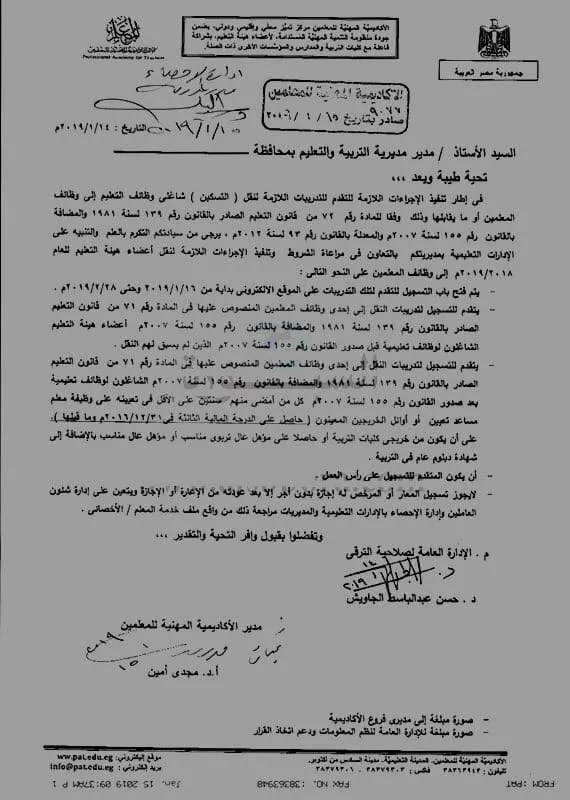 الأكاديمية المهنية للمعلمين مركز تميز محلي وإقليمي ودولي، يضمن
جودة منظومة التنمية المهنية المستدامة، لأعضاء هيئة التعليم، بشراكة
فاعلة مع كليات التربية والمدارس والمؤسسات الأخرى ذات الصلة.
Professional Academy for Teachers
جمهورية مصر العربية
الأكاديمية المهنية للمعلمين
صادر بتاريخ
التاريخ : ٢٠١٩/١/١٤م
السيد الأستاذ / مدير مديرية التربية والتعليم بمحافظة
تحية طيبة وبعد ،،،
فى إطار تنفيذ الإجراءات اللازمة للتقدم للتدريبات اللازمة لنقل ( التسكين ) شاغلى وظائف التعليم إلى وظائف
المعلمين أو ما يقابلها وذلك وفقا للمادة رقم ٧٢ من قانون التعليم الصادر بالقانون رقم ١٣٩ لسنة ١٩٨١ والمضافة
بالقانون رقم ١٥٥ لسنة ٢٠٠٧م والمعدلة بالقانون رقم ٩٣ لسنة ٢٠١٢م ، يرجى من سيادتكم التكرم بالعلم والتنبيه على
الإدارات التعليمية بمديريتكم بالتعاون فى مراعاة الشروط وتنفيذ الإجراءات اللازمة لنقل أعضاء هيئة التعليم للعام
٢٠١٩/٢٠١٨م إلى وظائف المعلمين على النحو التالى :
- يتم فتح باب التسجيل للتقدم لتلك التدريبات على الموقع الالكترونى بداية من ٢٠١٩/١/١٦م وحتى ٢٠١٩/٢/٢٨م .
- يتقدم للتسجيل لتدريبات النقل إلى إحدى وظائف المعلمين المنصوص عليها فى المادة رقم ٧١ من قانون التعليم
الصادر بالقانون رقم ١٣٩ لسنة ١٩٨١ والمضافة بالقانون رقم ١٥٥ لسنة ٢٠٠٧م أعضاء هيئة التعليم
الشاغلون لوظائف تعليمية قبل صدور القانون رقم ١٥٥ لسنة ٢٠٠٧م الذين لم يسبق لهم النقل .
- يتقدم للتسجيل لتدريبات النقل إلى إحدى وظائف المعلمين المنصوص عليها فى المادة رقم ٧١ من قانون التعليم
الصادر بالقانون رقم ١٣٩ لسنة ١٩٨١ والمضافة بالقانون رقم ١٥٥ لسنة ٢٠٠٧م الشاغلون لوظائف تعليمية
بعد صدور القانون رقم ١٥٥ لسنة ٢٠٠٧م كل من أمضى منهم سنتين على الأقل فى تعيينه على وظيفة معلم
مساعد تعيين أو أوائل الخريجين المعينون ( حاصل على الدرجة المالية الثالثة فى ٢٠١٦/١٢/٣١م وما قبلها ) ،
على أن يكون من خريجى كليات التربية أو حاصلا على مؤهل عال تربوى مناسب أو مؤهل عال مناسب بالإضافة إلى
شهادة دبلوم عام فى التربية .
- أن يكون المتقدم للتسجيل على رأس العمل .
- لايجوز تسجيل المعار أو المرخص له إجازة بدون أجر إلا بعد عودته من الإعارة أو الإجازة ويتعين على إدارة شئون
العاملين وإدارة الإحصاء بالإدارات التعليمية والمديريات مراجعة ذلك من واقع ملف خدمة المعلم / الأخصائى .
وتفضلوا بقبول وافر التحية والتقدير ،،،
م . الإدارة العامة لصلاحية الترقى
د . حسن عبدالباسط الجاويش
مدير الأكاديمية المهنية للمعلمين
أ.د. مجدى أمين
- صورة مبلغة إلى مديرى فروع الأكاديمية
- صورة مبلغة للإدارة العامة لنظم المعلومات ودعم اتخاذ القرار
الأكاديمية المهنية للمعلمين. المدينة التعليمية. مدينة السادس من أكتوبر.
موقع إليكتروني: www.pat.edu.eg
بريد إليكتروني: info@pat.edu.eg
FROM: PAT FAX NO.: 38363948 Jan. 15 2019 09:37AM P 1